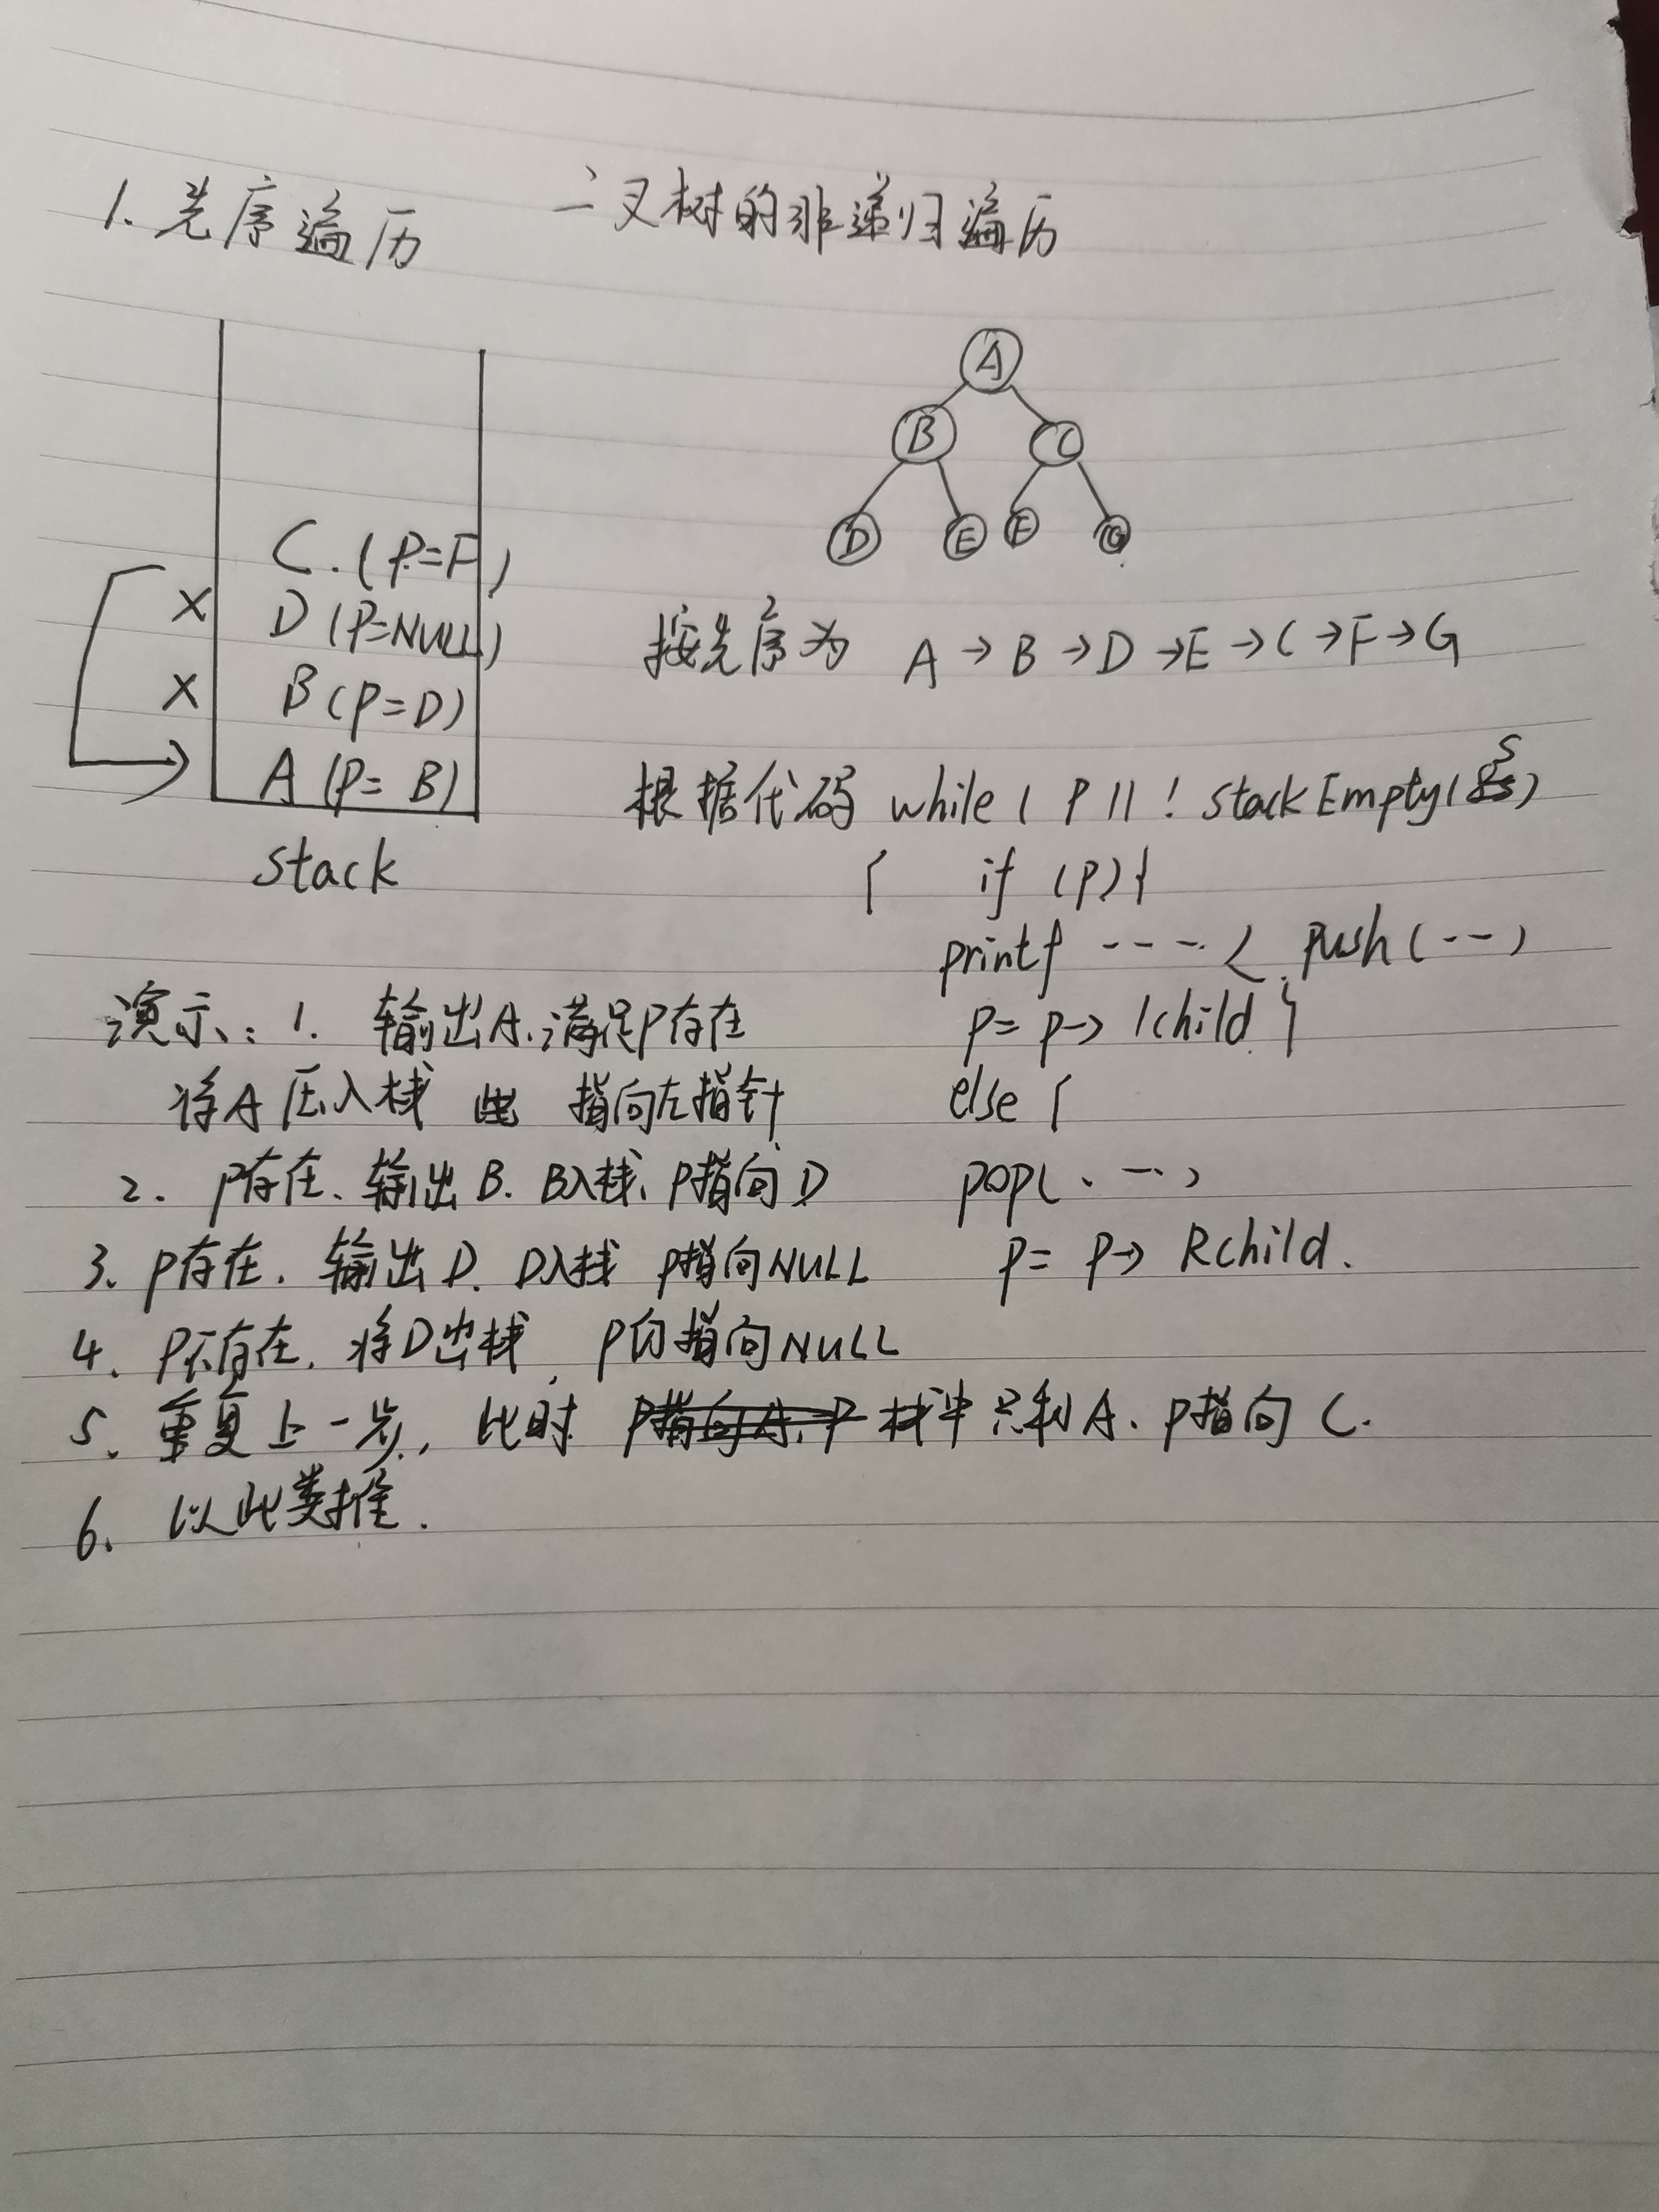 1. 先序遍历 二叉树的非递归遍历
A
B C
D E F G
C. (P=F)
× D (P=NULL)
× B (P=D)
A (P= B)
stack
按先序为 A → B → D → E → C → F → G
根据代码 while ( P || ! stackEmpty(S)
{ if (P){
printf ---- push(--)
P= P→ lchild }
else {
pop( ---)
P= P→ Rchild.
演示: 1. 输出A.满足P存在
将A压入栈 指向左指针
2. P存在. 输出B. B入栈. P指向D
3. P存在. 输出D. D入栈 P指向NULL
4. P不存在. 将D出栈, P仍指向NULL
5. 重复上一步, 此时 栈中只剩A. P指向C.
6. 以此类推.